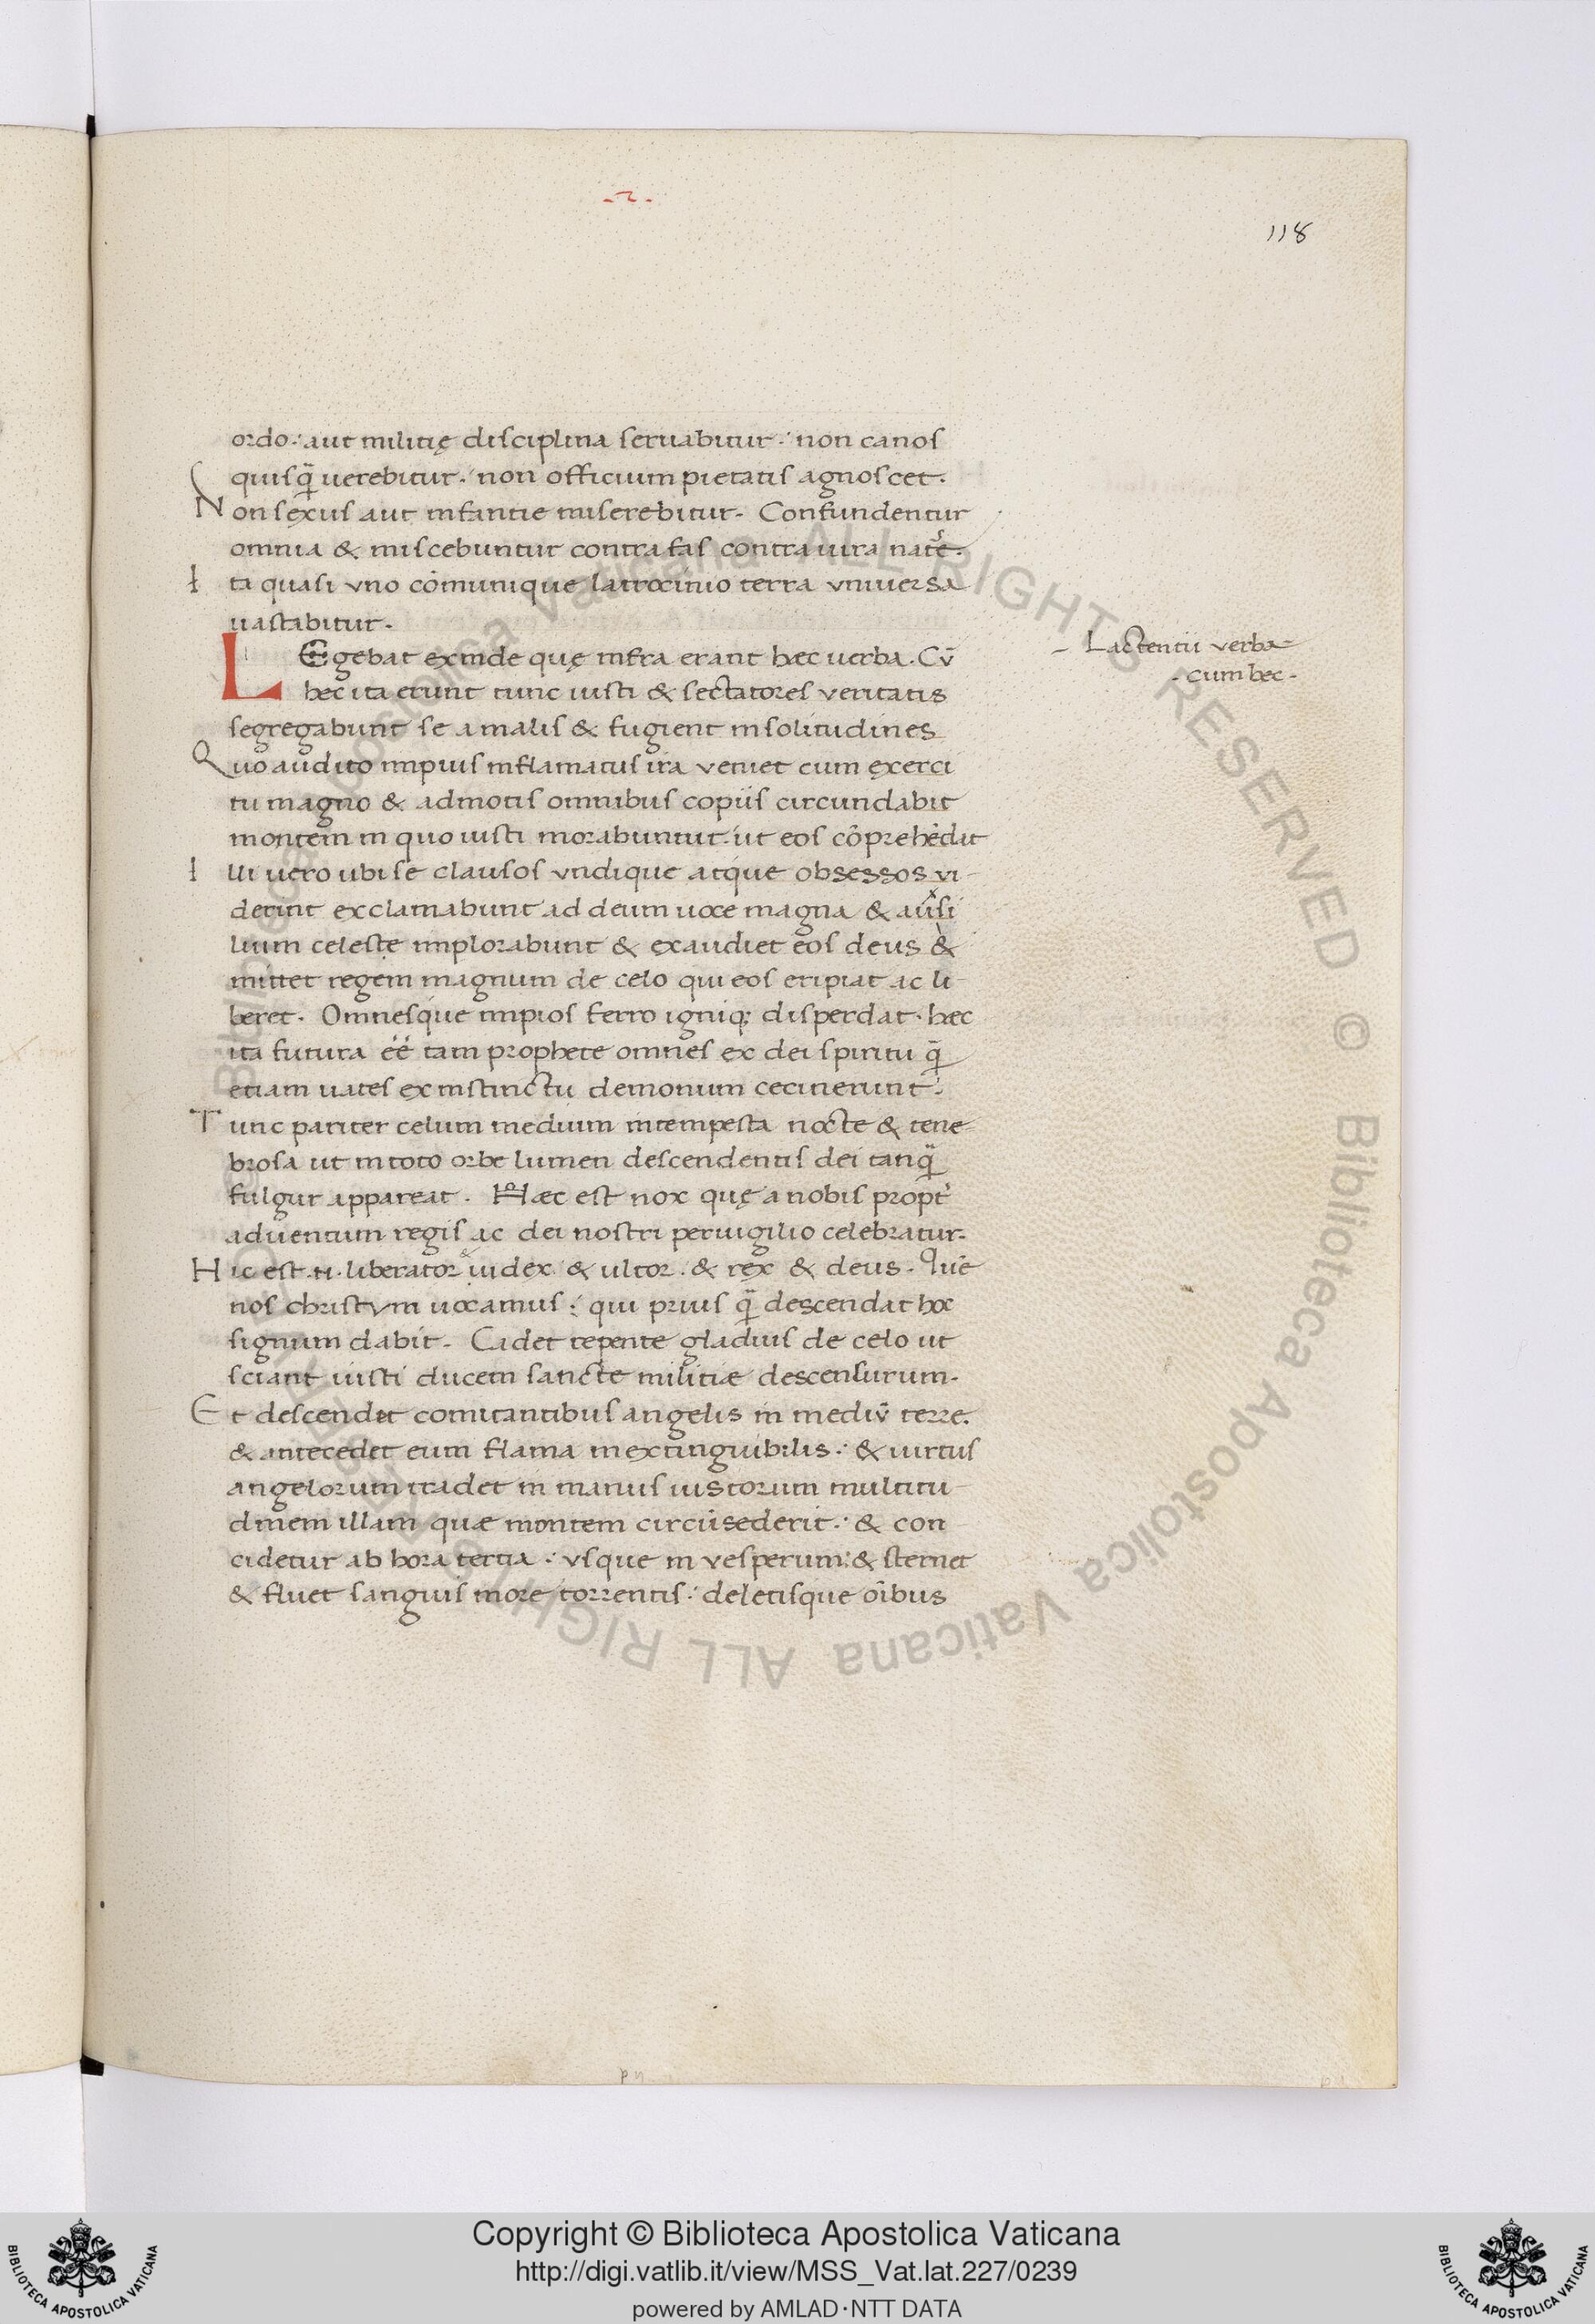 -2-
118
ordo: aut militię disciplina seruabitur: non canos
quisq̄ uerebitur: non officium pietatis agnoscet.
Non sexus aut infantie miserebitur. Confundentur
omnia & miscebuntur contra fas contra iura natr̄e.
Ita quasi vno cōmunique latrocinio terra vniuersa
uastabitur.
LEgebat exinde quę infra erant hæc uerba. Cū
hec ita erunt tunc iusti & sectatores veritatis
segregabunt se a malis & fugient in solitudines
Quo audito impius inflamatus ira veniet cum exerci
tu magno & admotis omnibus copiis circundabit
montem in quo iusti morabuntur: ut eos cōprehēdat
Illi uero ubi se clausos vndique atque obsessos vi-
derint exclamabunt ad deum uoce magna & auxsi
lium celeste implorabunt & exaudiet eos deus &
mittet regem magnum de celo qui eos eripiat ac li-
beret. Omnesque impios ferro igniq; disperdat. hæc
ita futura éé tam prophete omnes ex dei spiritu q̄
etiam uates ex instinctu demonum cecinerunt:
Tunc pariter celum medium intempesta nocte & tene-
brosa ut in toto orbe lumen descendentis dei tanq̄
fulgur appareat. Hæc est nox quę a nobis propt̄
aduentum regis ac dei nostri peruigilio celebratur.
Hic est .n. liberator & iudex & ultor. & rex & deus. Quē
nos christvm uocamus: qui prius q̄ descendat hoc
signum dabit. Cadet repente gladius de celo ut
sciant iusti ducem sancte militiæ descensurum.
Et descendet comitantibus angelis in mediū terre.
& antecedet eum flama inextinguibilis: & uirtus
angelorum tradet in manus iustorum multitu-
dinem illam quæ montem circūsederit: & con
cidetur ab hora tertia: vsque in vesperum: & sternet
& fluet sanguis more torrentis: deletisque oībus
- Lactentii verba-
- cum hec -
Copyright © Biblioteca Apostolica Vaticana
http://digi.vatlib.it/view/MSS_Vat.lat.227/0239
powered by AMLAD·NTT DATA
BIBLIOTECA APOSTOLICA VATICANA
BIBLIOTECA APOSTOLICA VATICANA
Biblioteca Apostolica Vaticana ALL RIGHTS RESERVED © Biblioteca Apostolica Vaticana ALL RIGHTS RESERVED ©